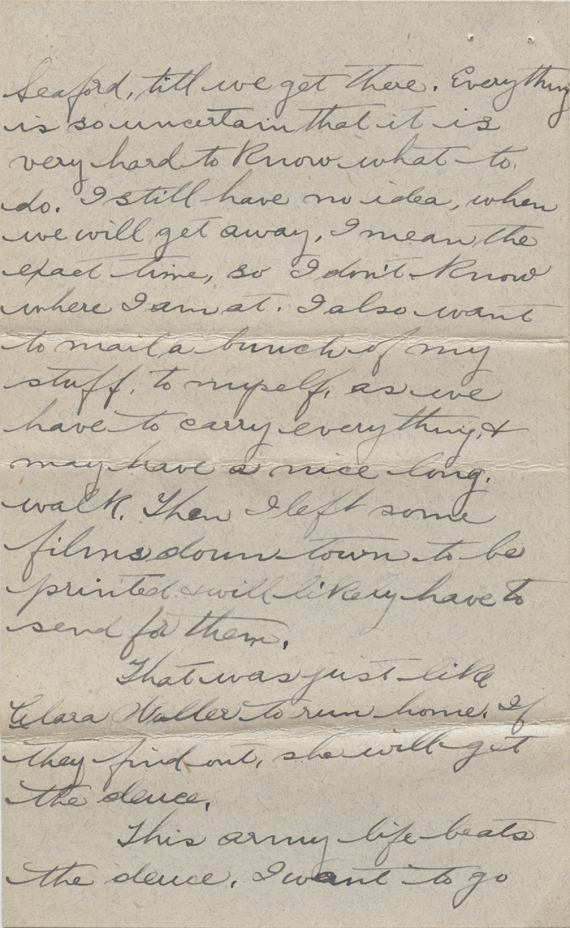 Seaford, till we get there. Everything
is so uncertain that it is
very hard to know what to
do. I still have no idea, when
we will get away, I mean the
exact time, so I don't know
where I am at. I also want
to mail a bunch of my
stuff, to myself, as we
have to carry everything, &
may have a nice long,
walk. Then I left some
films down town to be
printed & will likely have to
send for them.
That was just like
Clara Waller to run home. If
they find out, she will get
the deuce.
This army life beats
the deuce. I want to go